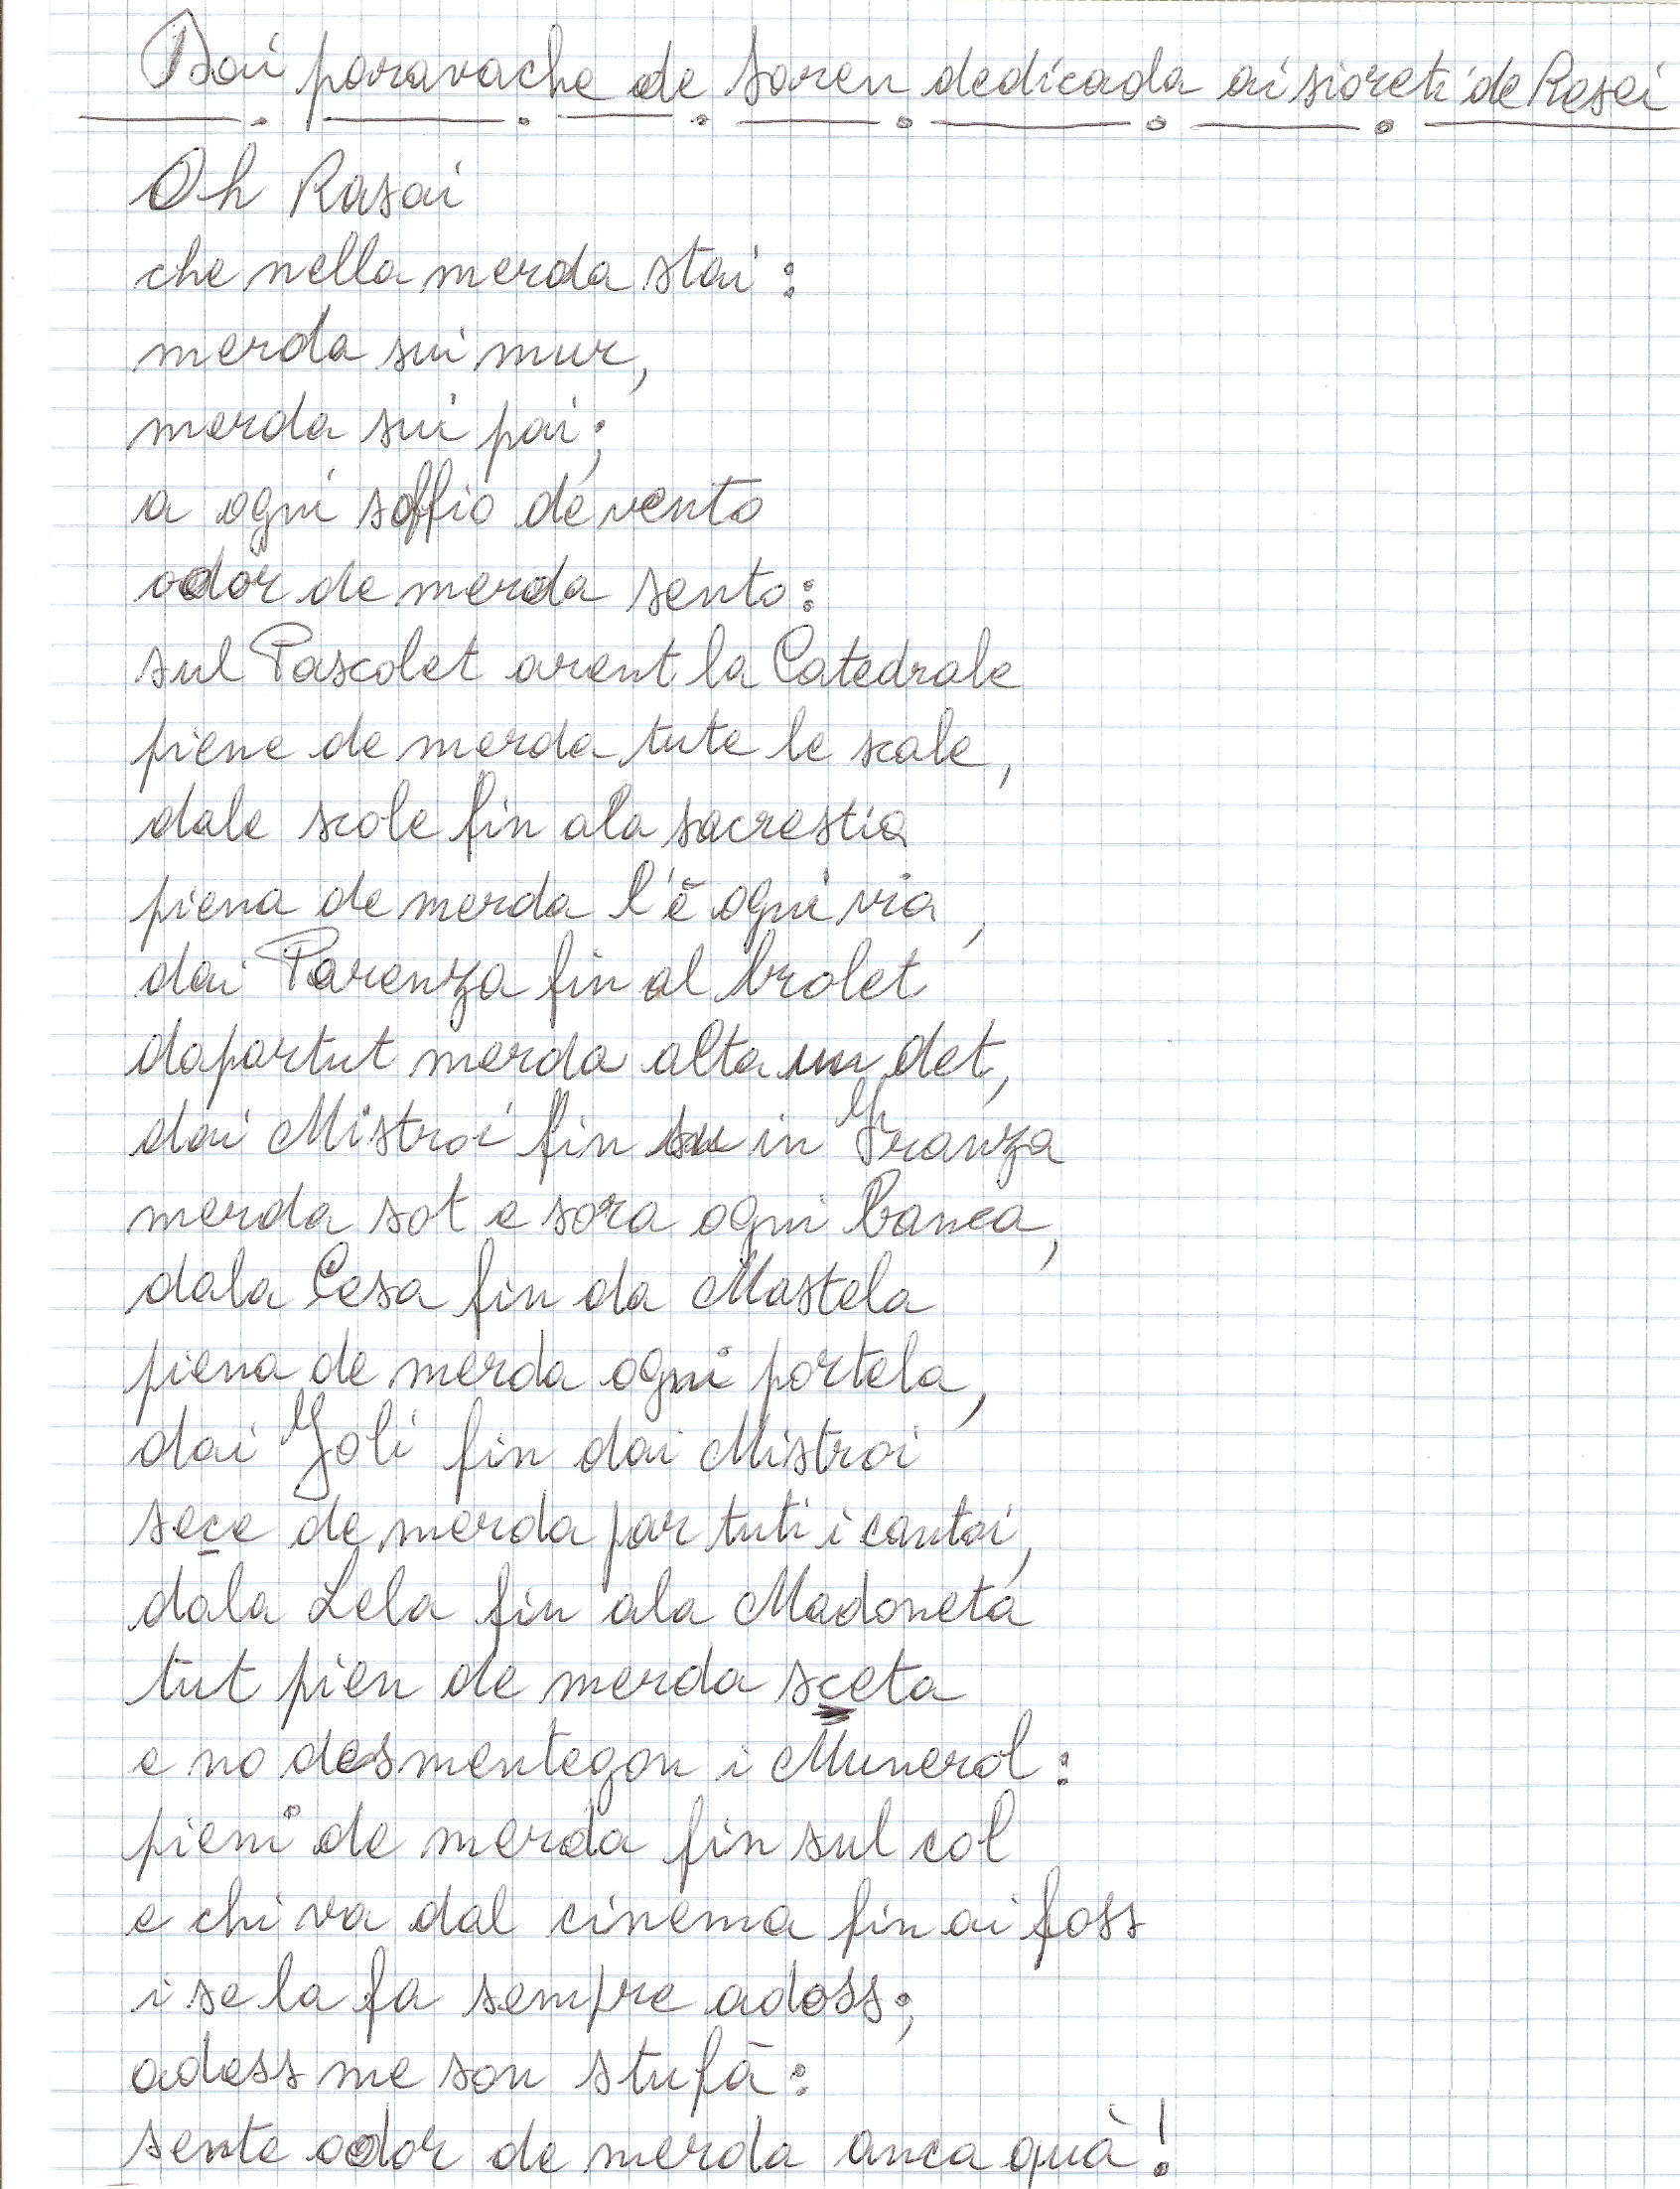 Dai paravache de Soren dedicada ai sioreti de Rasai
Oh Rasai
che nella merda stai:
merda sui mur,
merda sui pai;
a ogni soffio de vento
odor de merda sento:
sul Pascolet arent la Catedrale
piene de merda tute le scale,
dale scole fin ala sacrestia
piena de merda l'è ogni via,
dai Parenza fin al brolet
dapartut merda alta un det,
dai Mistroi fin su in Franza
merda sot e sora ogni banca,
dala Cesa fin da Mastela
piena de merda ogni portela,
dai Joli fin dai Mistroi
sece de merda par tuti i cantoi,
dala Lela fin ala Madoneta
tut pien de merda sceta
e no desmentegon i Munerol:
pieni de merda fin sul col
e chi va dal cinema fin ai foss
i se la fa sempre adoss;
adess me son stufà:
sente odor de merda anca quà!